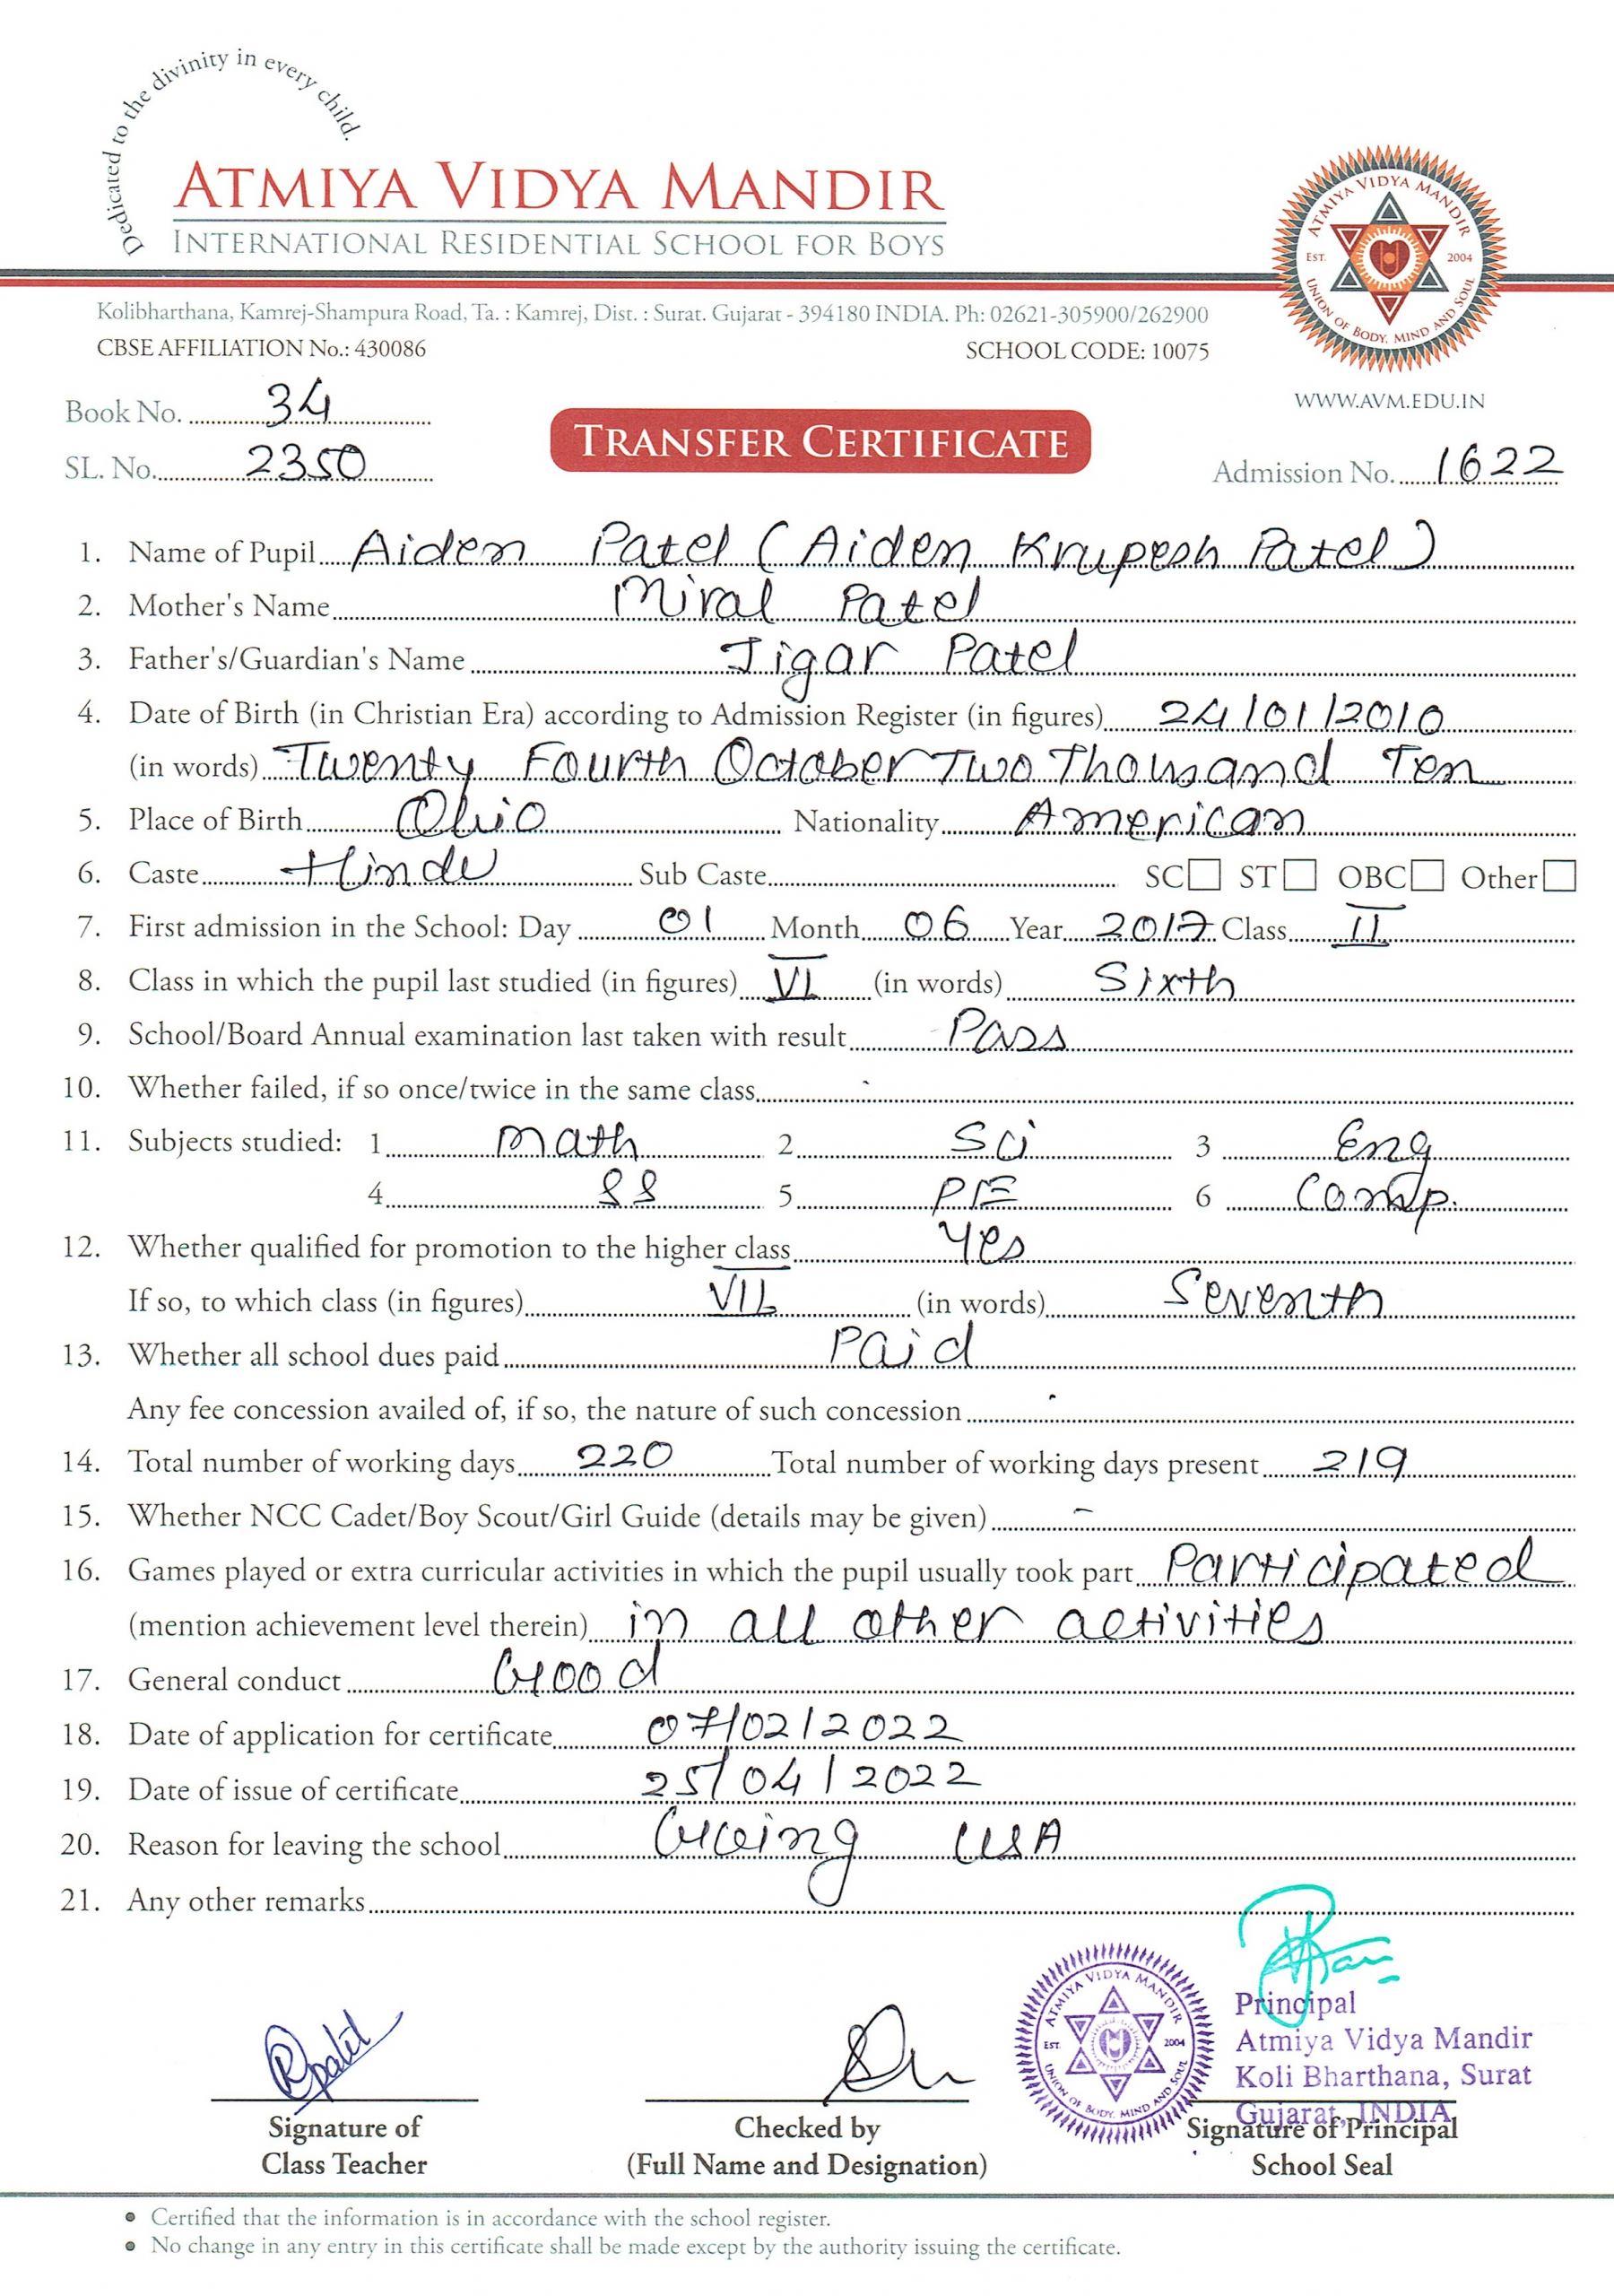 Dedicated to the divinity in every child.
ATMIYA VIDYA MANDIR
INTERNATIONAL RESIDENTIAL SCHOOL FOR BOYS
ATMIYA VIDYA MANDIR
EST. 2004
UNION OF BODY, MIND AND SOUL
Kolibharthana, Kamrej-Shampura Road, Ta. : Kamrej, Dist. : Surat. Gujarat - 394180 INDIA. Ph: 02621-305900/262900
CBSE AFFILIATION No.: 430086 SCHOOL CODE: 10075
WWW.AVM.EDU.IN
Book No. 34
TRANSFER CERTIFICATE
SL. No. 2350 Admission No. 1622
1. Name of Pupil Aiden Patel (Aiden Krupesh Patel)
2. Mother's Name Miral Patel
3. Father's/Guardian's Name Jigar Patel
4. Date of Birth (in Christian Era) according to Admission Register (in figures) 24/01/2010
(in words) Twenty Fourth October Two Thousand Ten
5. Place of Birth Ohio Nationality American
6. Caste Hindu Sub Caste SC ST OBC Other
7. First admission in the School: Day 01 Month 06 Year 2017 Class II
8. Class in which the pupil last studied (in figures) VI (in words) Sixth
9. School/Board Annual examination last taken with result Pass
10. Whether failed, if so once/twice in the same class
11. Subjects studied: 1 Math 2 Sci 3 Eng
4 SS 5 PE 6 Comp.
12. Whether qualified for promotion to the higher class Yes
If so, to which class (in figures) VII (in words) Seventh
13. Whether all school dues paid Paid
Any fee concession availed of, if so, the nature of such concession
14. Total number of working days 220 Total number of working days present 219
15. Whether NCC Cadet/Boy Scout/Girl Guide (details may be given) -
16. Games played or extra curricular activities in which the pupil usually took part Participated
(mention achievement level therein) in all other activities
17. General conduct Good
18. Date of application for certificate 07/02/2022
19. Date of issue of certificate 25/04/2022
20. Reason for leaving the school Going USA
21. Any other remarks
ATMIYA VIDYA MANDIR
EST. 2004
UNION OF BODY, MIND AND SOUL
Principal
Atmiya Vidya Mandir
Koli Bharthana, Surat
Gujarat, INDIA
Signature of Checked by Signature of Principal
Class Teacher (Full Name and Designation) School Seal
• Certified that the information is in accordance with the school register.
• No change in any entry in this certificate shall be made except by the authority issuing the certificate.